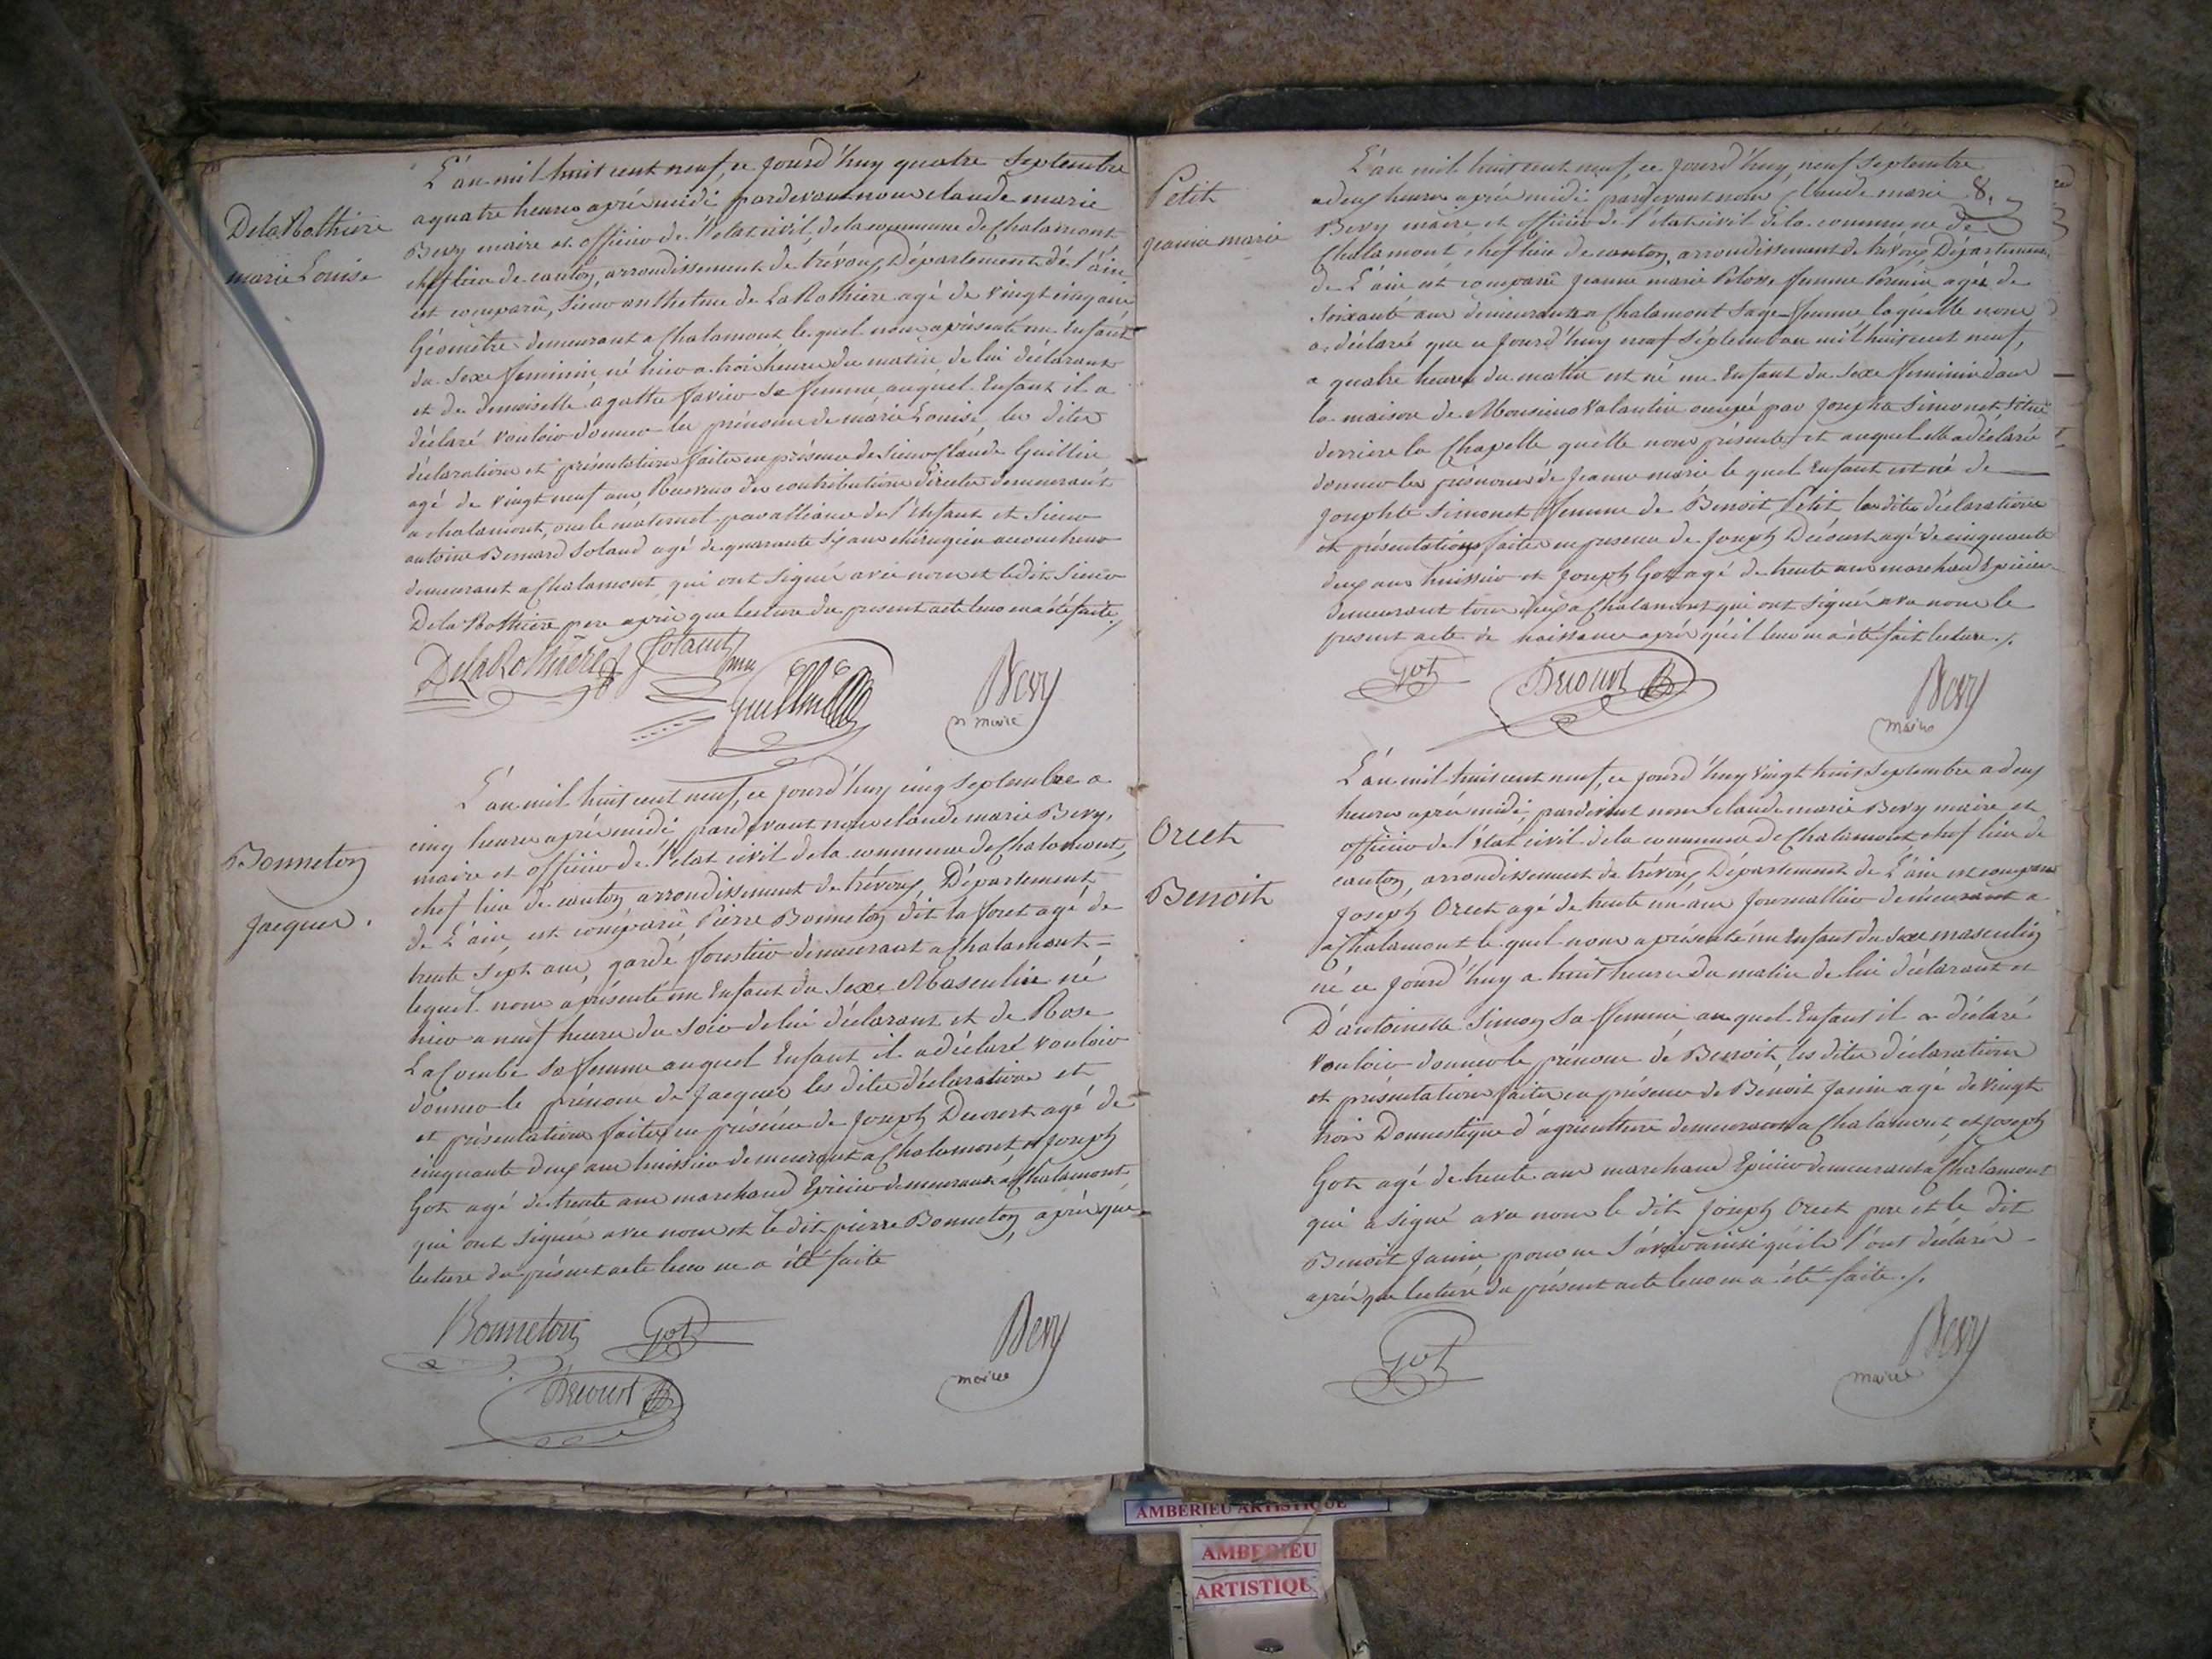 De la Rothiere
marie Louise
L'an mil huit cent neuf, ce jourd'huy quatre Septembre
a quatre heures aprés midi pardevant nous claude marie
Bevy maire et officier de l'état civil, de la commune de Chalamont
chef lieu de canton, arrondissement de trévoux, Département de l'ain
est comparû, Sieur anthelme de La Rothiere agé de vingt cinq ans
Géomètre demeurant a Chalamont le quel nous a présenté un Enfant
du Sexe feminin né hier a trois heures du matin de lui déclarant
et de demoiselle agathe favier Sa femme auquel Enfant il a
déclaré vouloir donner les prénoms de marie Louise, les dites
déclaration et présentation faites en présence de Sieur Claude Guillin
agé de vingt neuf ans Receveur des contributions directes demeurant
a chalamont, oncle maternel par alliance de l'Enfant et Sieur
antoine Bernard Solaud agé de quarante Six ans chirugien accoucheur
demeurant a Chalamont, qui ont Signé avec nous et ledit Sieur
De la Rothiere pere aprés que lecture du present acte leur en a été faite./.
De la Rothiere Solaud
Guillin Bevy
maire
Bonneton
Jacques.
L'an mil huit cent neuf, ce jourd'huy cinq Septembre a
cinq heures aprés midi, pardevant nous claude marie Bevy,
maire et officier de l'état civil de la commune de Chalamont,
chef lieu de canton arrondissement de trévoux, Département
de L'ain, est comparû Pierre Bonneton dit la foret agé de
trente Sept ans, garde forestier demeurant a Chalamont
lequel nous a présenté un Enfant du Sexe Masculin né
hier a neuf heures du Soir de lui déclarant et de Rose
La Combe Sa femme auquel Enfant il a déclaré vouloir
donner le prénom de Jacques les dites déclaration et
et présentation faites en présence de Joseph Decourt agé de
cinquante deux ans huissier demeurant a Chalamont et Joseph
Got agé de trente ans marchand Epicier demeurant a Chalamont
qui ont Signé avec nous et le dit pierre Bonneton, aprés que
lecture du présent acte leur en a été faite
Bonneton Got Bevy
maire
Decourt
Petit
jeanne marie
L'an mil huit cent neuf, ce jourd'huy neuf Septembre
a deux heures aprés midi pardevant nous Claude marie 8.
Bevy maire et officier de l'état civil de la commune de
Chalamont, chef lieu de canton, arrondissement de trévoux Département
de L'ain est comparû Jeanne marie femme agée de
Soixante ans demeurant a Chalamont Sage-femme, laquelle nous
a déclaré que ce jourd'huy neuf Septembre mil huit cent neuf,
a quatre heures du matin est né un Enfant du Sexe feminin dans
la maison de Monsieur Valantin occupée par Josephte Simonet Située
derriere la Chapelle qu'elle nous présente et auquel elle a déclaré
donner les prénoms de Jeanne marie le quel Enfant est né de
Josephte Simonet femme de Benoit Petit, les dites déclaration
et présentation faites en presence de Joseph Decourt agé de cinquante
deux ans huissier et Joseph Got agé de trente ans marchand Epicier
demeurant tous deux a Chalamont qui ont Signé avec nous le
present acte de naissance aprés qu'il leur en a été fait lecture./.
Got Decourt Bevy
maire
Orcet
Benoit
L'an mil huit cent neuf, ce jourd'huy vingt huit Septembre a deux
heures aprés midi, pardevant nous claude marie Bevy maire et
officier de l'état civil de la commune de Chalamont, chef lieu de
canton, arrondissement de trévoux, Département de L'ain est comparu
Joseph Orcet agé de trente un ans Journallier demeurant a
a Chalamont le quel nous a présenté un Enfant du Sexe masculin
né ce jourd'huy a huit heures du matin de lui déclarant et
D'antoinette Simon Sa femme auquel Enfant il a déclaré
vouloir donner le prénom de Benoit, les dites déclaration
et présentation faites en présence de Benoit Janin agé de vingt
trois Domestique d'agriculture demeurant a Chalamont, et Joseph
Got agé de trente ans marchand Epicier demeurant a Chalamont
qui a Signé avec nous le dit Joseph Orcet pere et le dit
Benoit Janin, pour ne Savoir ainsi qu'ils l'ont déclaré
aprés que lecture du présent acte leur en a été faite./.
Got Bevy
maire
AMBERIEU ARTISTIQUE
AMBERIEU
ARTISTIQU